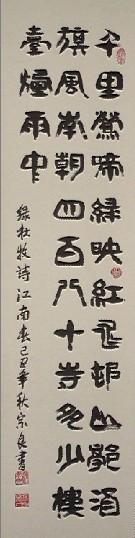 千里鶯啼綠映紅水邨山郭酒
旗風南朝四百八十寺多少樓
臺煙雨中
錄杜牧詩江南春己丑年秋宗良書